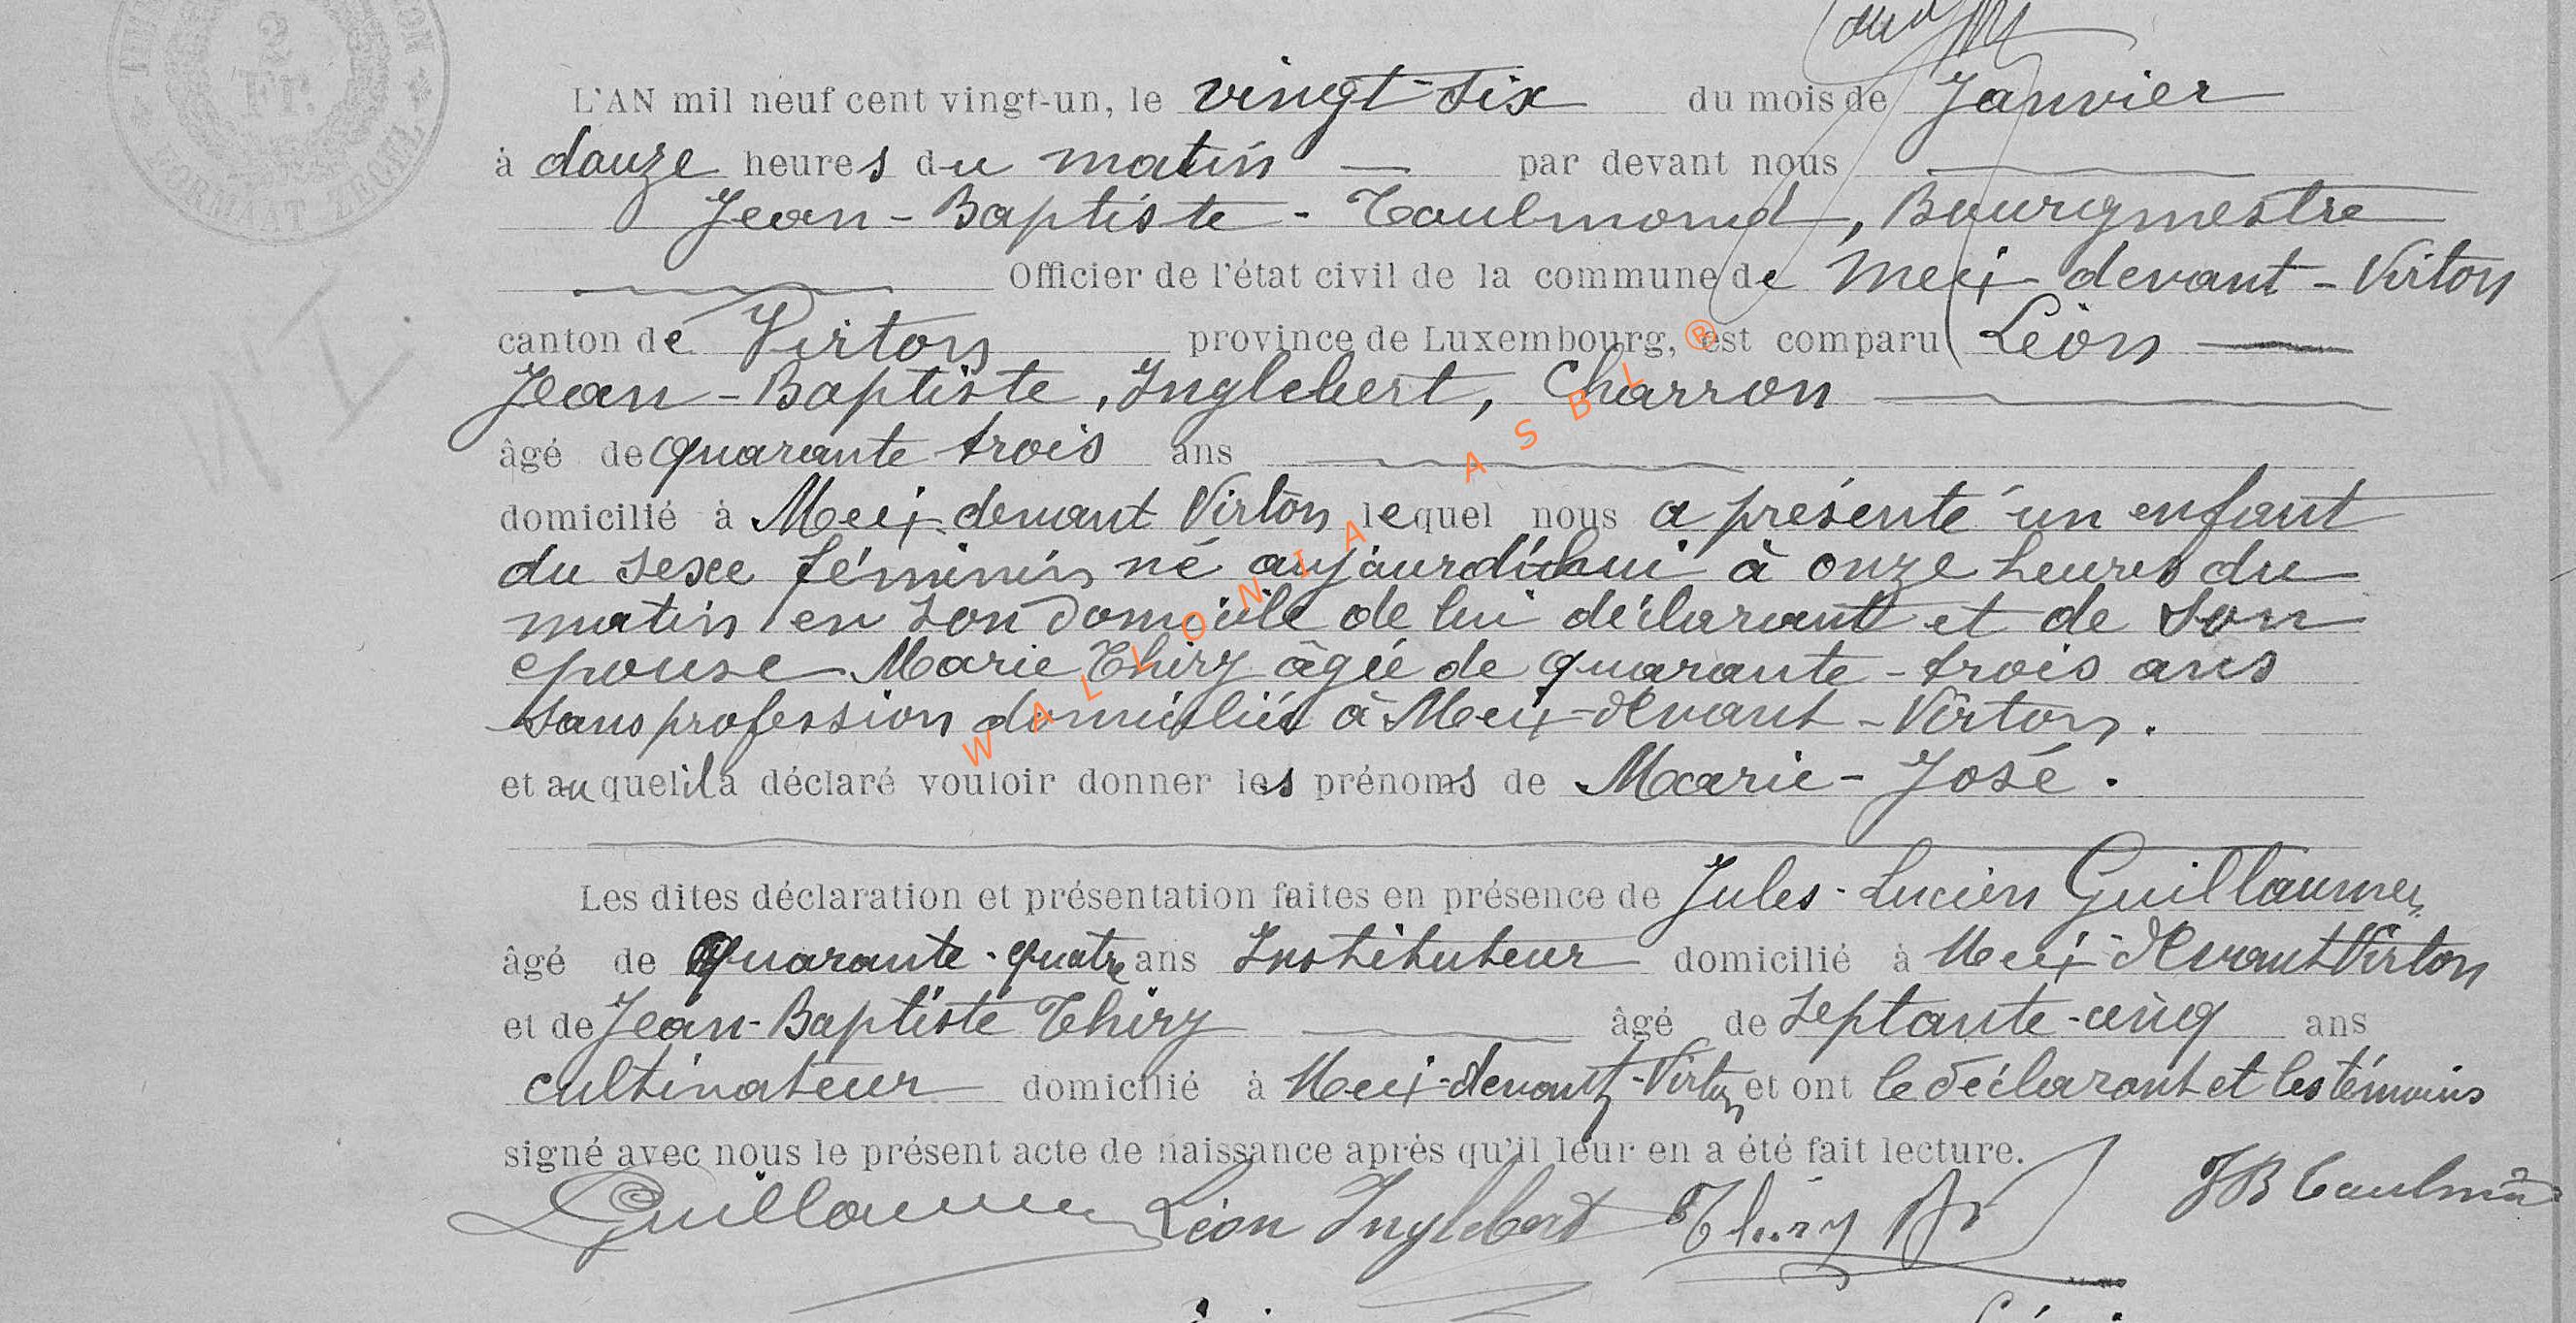 2
Fr.
L'AN mil neuf cent vingt-un, le vingt-six du mois de Janvier
à douze heures du matin par devant nous
Jean-Baptiste-Toulmond, Bourgmestre
Officier de l'état civil de la commune de Meix-devant-Virton
canton de Virton province de Luxembourg, est comparu Léon
Jean-Baptiste, Inglebert, Charron
âgé de quarante trois ans
domicilié à Meix-devant Virton lequel nous a présenté un enfant
du sexe féminin né aujourd'hui à onze heures du
matin en son domicile de lui déclarant et de son
epouse Marie Thiry âgée de quarante-trois ans
sans profession domiciliés à Meix-devant-Virton.
et auquel il a déclaré vouloir donner les prénoms de Marie-José.
Les dites déclaration et présentation faites en présence de Jules-Lucien Guillaume,
âgé de quarante-quatre ans Instituteur domicilié à Meix-devant Virton
et de Jean-Baptiste Thiry âgé de septante-cinq ans
cultivateur domicilié à Meix-devant-Virton et ont le déclarant et les témoins
signé avec nous le présent acte de naissance après qu'il leur en a été fait lecture.
Guillaume Léon Inglebert Thiry JB Toulmond
WALLONIA ASBL ®